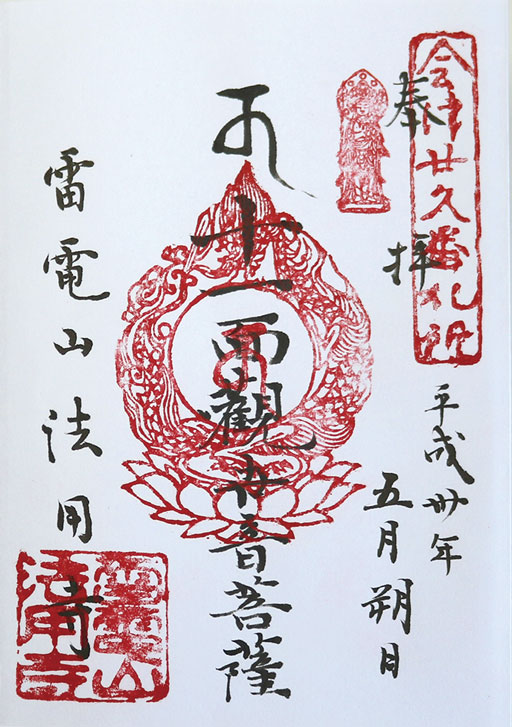 会津廿久番札所
奉拝
平成卅年
五月朔日
十一面觀世音菩薩
雷電山法用寺
雷電山
法用寺